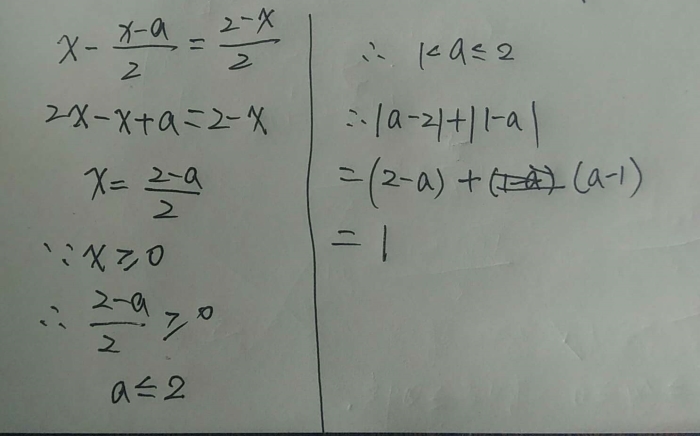 x - (x-a)/2 = (2-x)/2
2x-x+a=2-x
x = (2-a)/2
∵ x ≥ 0
∴ (2-a)/2 ≥ 0
a ≤ 2
∴ 1< a ≤ 2
∴ |a-2|+|1-a|
=(2-a) + (1-a) (a-1)
= 1